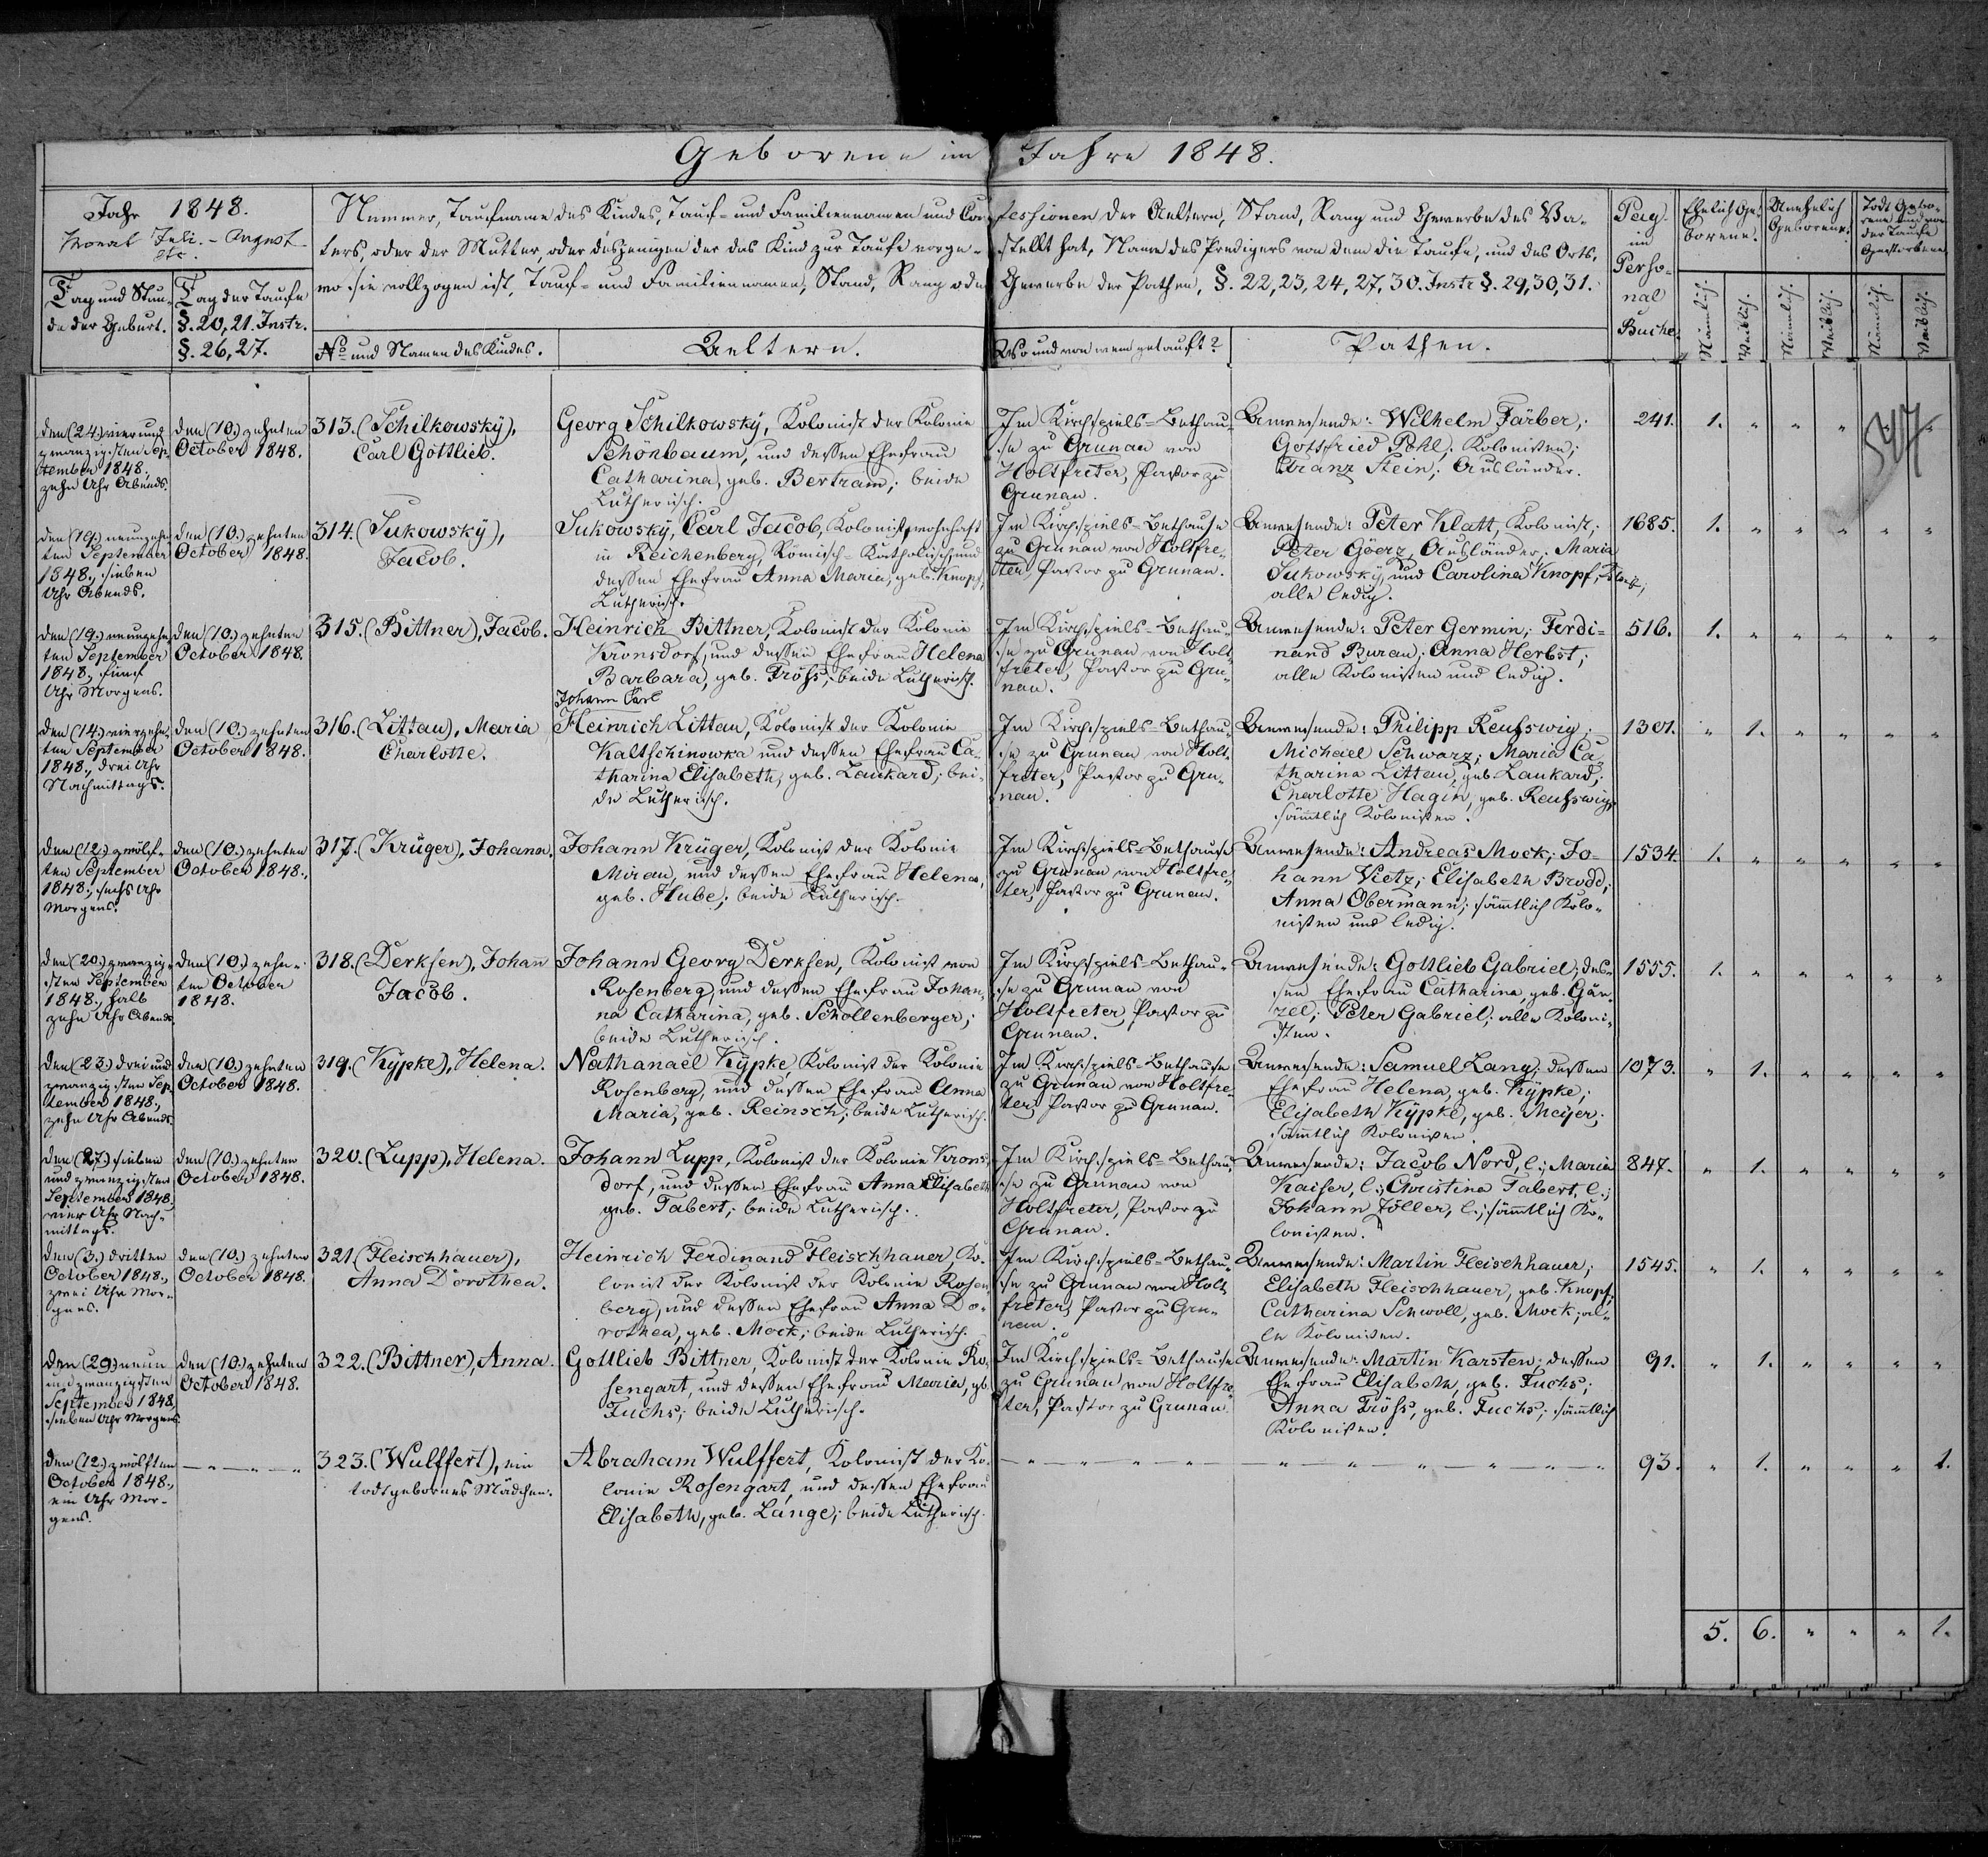 Geborene im Jahre 1848.
Jahr 1848.
Monat Juli. - August
etc.
Tag und Stun-
de der Geburt.
Tag der Taufe
§. 20, 21. Instr.
§. 26, 27.
Nummer, Taufname des Kindes, Tauf- und Familiennamen und Confessionen der Aeltern, Stand, Rang und Gewerbe des Va-
ters, oder der Mutter, oder desjenigen der das Kind zur Taufe vorge-stellt hat, Name des Predigers von dem die Taufe, und des Orts,
wo sie vollzogen ist, Tauf- und Familiennamen, Stand, Rang oder Gewerbe der Pathen, §. 22, 23, 24, 27, 30. Instr §. 29, 30, 31.
No und Namen des Kindes.
Aeltern.
Wo und von wem getauft?
Pathen.
Pag.
im
Perso-
nal
Buche.
Ehelich Ge-
borene.
Unehelich
Geborene.
Todt Gebo-
rene und vor
der Taufe
Gestorbene
Männlich.
Weiblich.
Männlich.
Weiblich.
Männlich.
Weiblich.
den (24.) vier und
zwanzigsten Sep-
tember 1848.,
zehn Uhr Abends.
den (10.) zehnten
October 1848.
313. (Schilkowsky),
Carl Gottlieb.
Georg Schilkowsky, Kolonist der Kolonie
Schönbaum, und dessen Ehefrau
Catharina, geb. Bertram; beide
Lutherisch.
Im Kirchspiels-Bethau-
se zu Grunau von
Holtfreter, Pastor zu
Grunau.
Anwesende: Wilhelm Färber;
Gottfried Pohl; Kolonisten;
Franz Stein; Ausländer.
241. 1. " " " " "
den (19.) neunzehn
ten September
1848., sieben
Uhr Abends.
den (10.) zehnten
October 1848.
314. (Sukowsky),
Jacob.
Sukowsky, Carl Jacob, Kolonist, wohnhaft
in Reichenberg, Römisch-Katholisch und
dessen Ehefrau Anna Maria, geb. Knopf,
Lutherisch.
Im Kirchspiels-Bethause
zu Grunau von Holtfre-
ter, Pastor zu Grunau.
Anwesende: Peter Klatt, Kolonist;
Peter Göerz, Ausländer; Maria
Sukowsky und Carolina Knopf,
alle ledig.
1685. 1. " " " " "
den (19.) neunzehn
ten September
1848., fünf
Uhr Morgens.
den (10.) zehnten
October 1848.
315. (Bittner), Jacob.
Heinrich Bittner, Kolonist der Kolonie
Kronsdorf, und dessen Ehefrau Helena
Barbara, geb. Fröhs; beide Lutherisch.
Im Kirchspiels-Bethau-
se zu Grunau von Holt-
freter, Pastor zu Gru-
nau.
Anwesende: Peter Germin; Ferdi-
nand Burau; Anna Herbst;
alle Kolonisten und ledig.
516. 1. " " " " "
den (14.) vierzehn-
ten September
1848., drei Uhr
Nachmittags.
den (10.) zehnten
October 1848.
316. (Littau), Maria
Charlotte.
Johann Carl
Heinrich Littau, Kolonist der Kolonie
Kaltschinowka und dessen Ehefrau Ca-
tharina Elisabeth, geb. Laukard; bei-
de Lutherisch.
Im Kirchspiels-Bethau-
se zu Grunau von Holt-
freter, Pastor zu Gru-
nau.
Anwesende: Philipp Reuhswig;
Michael Schwarz; Maria Ca-
tharina Littau, geb. Laukard;
Charlotte Hagin, geb. Reuhswig;
sämtlich Kolonisten.
1301. " 1. " " " "
den (12.) zwölf-
ten September
1848., sechs Uhr
Morgens.
den (10.) zehnten
October 1848.,
317. (Krüger), Johann.
Johann Krüger, Kolonist der Kolonie
Mirau, und dessen Ehefrau Helena,
geb. Hube; beide Lutherisch.
Im Kirchspiels-Bethause
zu Grunau von Holtfre-
ter, Pastor zu Grunau.
Anwesende: Andreas Mock; Jo-
hann Vietz; Elisabeth Brodd;
Anna Obermann; sämtlich Kolo-
nisten und ledig.
1534. 1. " " " " "
den (20.) zwanzig-
sten September
1848., halb
zehn Uhr Abends.
den (10.) zehn-
ten October
1848.
318. (Derksen), Johann
Jacob.
Johann Georg Derksen, Kolonist von
Rosenberg, und dessen Ehefrau Johan-
na Catharina, geb. Schollenberger;
beide Lutherisch.
Im Kirchspiels-Bethau-
se zu Grunau von
Holtfreter, Pastor zu
Grunau.
Anwesende: Gottlieb Gabriel; des-
sen Ehefrau Catharina, geb. Gän-
zel; Peter Gabriel; alle Koloni-
sten.
1555. 1. " " " " "
den (23.) drei und
zwanzigsten Sep-
tember 1848.,
zehn Uhr Abends.
den (10.) zehnten
October 1848.
319. (Kypke), Helena.
Nathanael Kypke, Kolonist der Kolonie
Rosenberg, und dessen Ehefrau Anna
Maria, geb. Reinsch; beide Lutherisch.
Im Kirchspiels-Bethause
zu Grunau von Holtfre-
ter, Pastor zu Grunau.
Anwesende: Samuel Lang; dessen
Ehefrau Helena, geb. Kypke;
Elisabeth Kypke, geb. Meyer;
sämtlich Kolonisten.
1073. " 1. " " " "
den (27.) sieben
und zwanzigsten
September 1848.
vier Uhr Nach-
mittags.
den (10.) zehnten
October 1848.
320. (Lupp), Helena.
Johann Lupp, Kolonist der Kolonie Krons-
dorf, und dessen Ehefrau Anna Elisabeth
geb. Tabert; beide Lutherisch.
Im Kirchspiels-Bethau-
se zu Grunau von
Holtfreter, Pastor zu
Grunau.
Anwesende: Jacob Nord, l.; Maria
Kaiser, l.; Christina Tabert, l.;
Johann Zöller, l.; sämtlich Ko-
lonisten.
847. " 1. " " " "
den (3.) dritten
October 1848.,
zwei Uhr Mor-
gens.
den (10.) zehnten
October 1848.
321. (Fleischhauer),
Anna Dorothea.
Heinrich Ferdinand Fleischhauer, Ko-
lonist der Kolonist der Kolonie Rosen-
berg, und dessen Ehefrau Anna Do-
rothea, geb. Mock; beide Lutherisch.
Im Kirchspiels-Bethau-
se zu Grunau von Holt-
freter, Pastor zu Gru-
nau.
Anwesende: Martin Fleischhauer;
Elisabeth Fleischhauer, geb. Knopf;
Catharina Schwoll, geb. Mock; al-
le Kolonisten.
1545. " 1. " " " "
den (29.) neun
und zwanzigsten
September 1848,
sieben Uhr Morgens.
den (10.) zehnten
October 1848.
322. (Bittner), Anna.
Gottlieb Bittner, Kolonist der Kolonie Ro-
sengart, und dessen Ehefrau Maria, gb.
Fuchs; beide Lutherisch.
Im Kirchspiels-Bethause
zu Grunau von Holtfre-
ter, Pastor zu Grunau.
Anwesende: Martin Karsten; dessen
Ehefrau Elisabeth, geb. Fuchs;
Anna Fröhs, geb. Fuchs; sämtlich
Kolonisten.
91. " 1. " " " "
den (12.) zwölften
October 1848.,
ein Uhr Mor-
gens.
323. (Wulffert), ein
todtgebornes Mädchen.
Abraham Wulffert, Kolonist der Ko-
lonie Rosengart, und dessen Ehefrau
Elisabeth, geb. Länge; beide Lutherisch.
93. " 1. " " " 1.
5. 6. " " " 1.